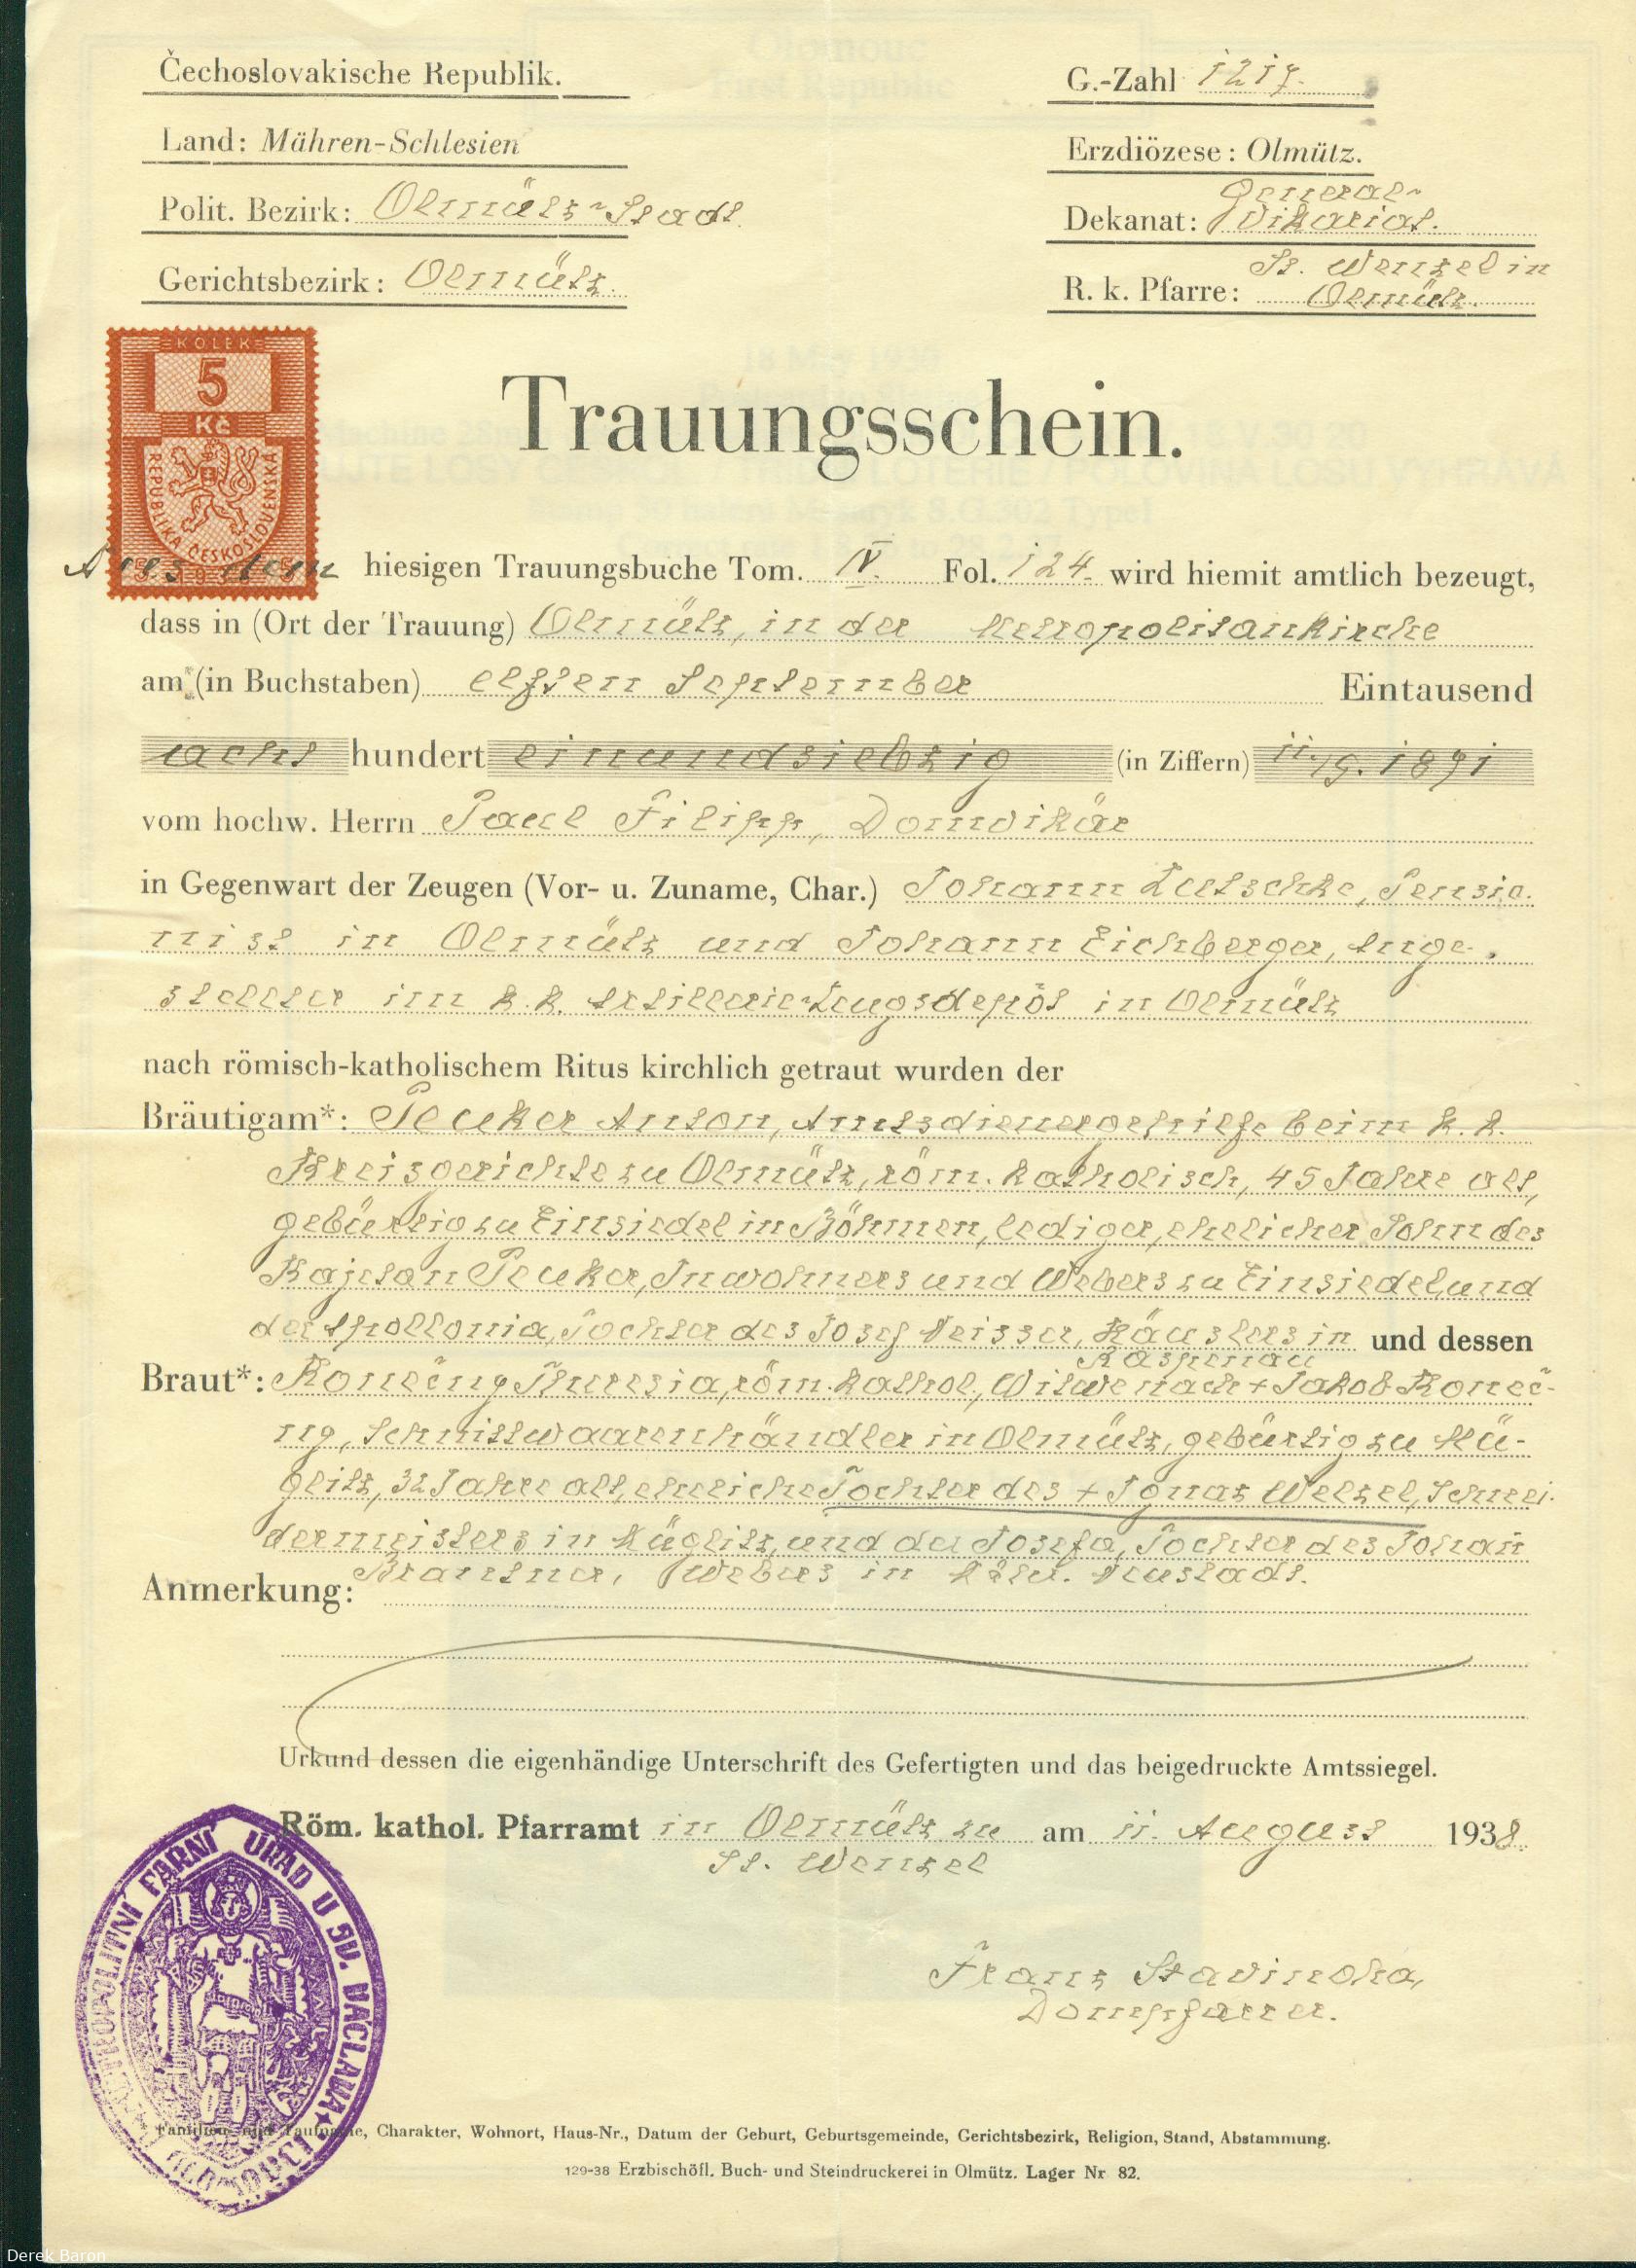 Čechoslovakische Republik.
G.-Zahl 1217.
Land: Mähren-Schlesien
Erzdiözese: Olmütz.
Polit. Bezirk: Olmütz-Stadt
Dekanat: General-
Vikariat.
Gerichtsbezirk: Olmütz.
R. k. Pfarre: St. Wenzel in
Olmütz.
KOLEK
5
Kč
REPUBLIKA ČESKOSLOVENSKÁ
Trauungsschein.
Aus dem hiesigen Trauungsbuche Tom. IV. Fol. 124. wird hiemit amtlich bezeugt,
dass in (Ort der Trauung) Olmütz, in der Metropolitankirche
am (in Buchstaben) elften September Eintausend
acht hundert einundsiebzig (in Ziffern) 11./9. 1871
vom hochw. Herrn Paul Filipp, Domvikär
in Gegenwart der Zeugen (Vor- u. Zuname, Char.) Johann Lutschke, Pensio-
nist in Olmütz und Johann Eichberger, Ange-
stellter im k.k. Artillerie-Zeugsdepôt in Olmütz
nach römisch-katholischem Ritus kirchlich getraut wurden der
Bräutigam*: Peuker Anton, Amtsdienergehilfe beim k.k.
Kreisgerichte zu Olmütz, röm. katholisch, 45 Jahre alt,
gebürtig zu Einsiedel in Böhmen, lediger, ehelicher Sohn des
Kajetan Peuker, Inwohners und Webers zu Einsiedel, und
der Apollonia, Tochter des Josef Neisser, Häuslers in und dessen
Raspenau
Braut*: Konečny Theresia, röm. kathol., Witwe nach + Jakob Koneč-
ny, Schnittwaarenhändler in Olmütz, gebürtig zu Mü-
glitz, 32 Jahre alt, eheliche Tochter des + Ignaz Welzel, Schnei-
dermeisters in Müglitz, und der Josefa, Tochter des Johan
Brantner, Webers in Mähr. Neustadt.
Anmerkung:
Urkund dessen die eigenhändige Unterschrift des Gefertigten und das beigedruckte Amtssiegel.
Röm. kathol. Pfarramt in Olmütz zu am 11. August 1938.
St. Wenzel
METROPOLITNÍ FARNÍ ÚŘAD U SV. VÁCLAVA
OLOMOUCI
Franz Stavinoha,
Dompfarrer.
* Familien- und Taufname, Charakter, Wohnort, Haus-Nr., Datum der Geburt, Geburtsgemeinde, Gerichtsbezirk, Religion, Stand, Abstammung.
129-38 Erzbischöfl. Buch- und Steindruckerei in Olmütz. Lager Nr 82.
Derek Baron